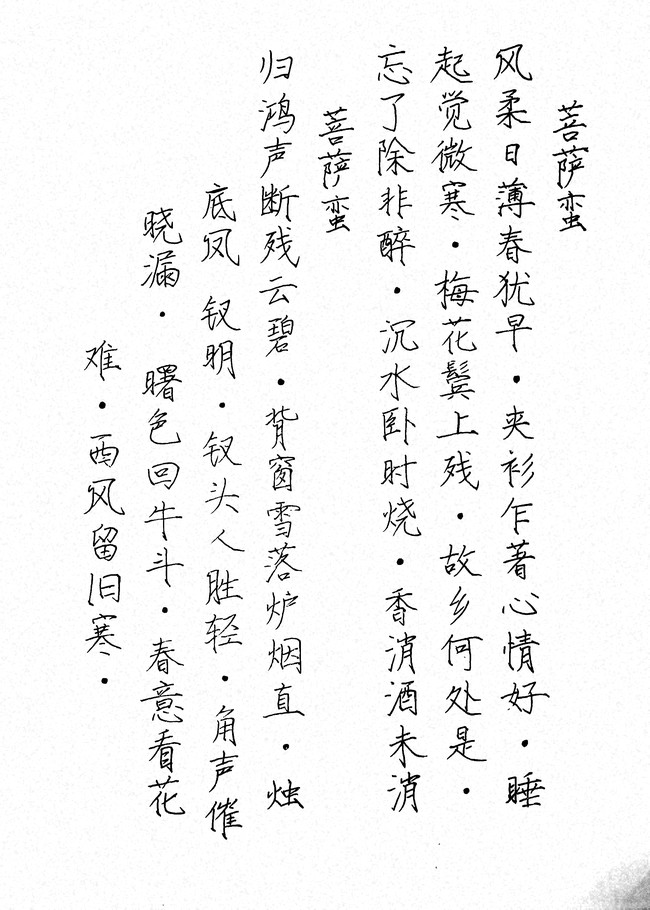 菩萨蛮
风柔日薄春犹早·夹衫乍著心情好·睡
起觉微寒·梅花鬓上残·故乡何处是·
忘了除非醉·沉水卧时烧·香消酒未消
菩萨蛮
归鸿声断残云碧·背窗雪落炉烟直·烛
底凤钗明·钗头人胜轻·角声催
晓漏·曙色回牛斗·春意看花
难·西风留旧寒·